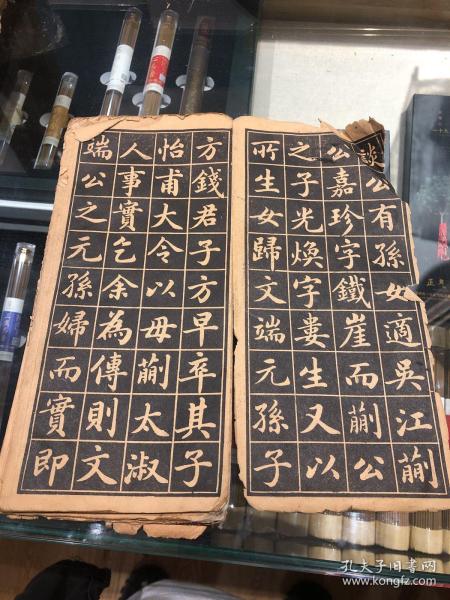 談公有孫女適吳江蒯
公嘉珍字鐵崖而蒯公
之子光煥字婁生又以
所生女歸文端元孫子
方錢君子方早卒其子
怡甫大令以母蒯太淑
人事實乞余為傳則文
端公之元孫婦而實即
孔夫子旧书网
www.kongfz.com